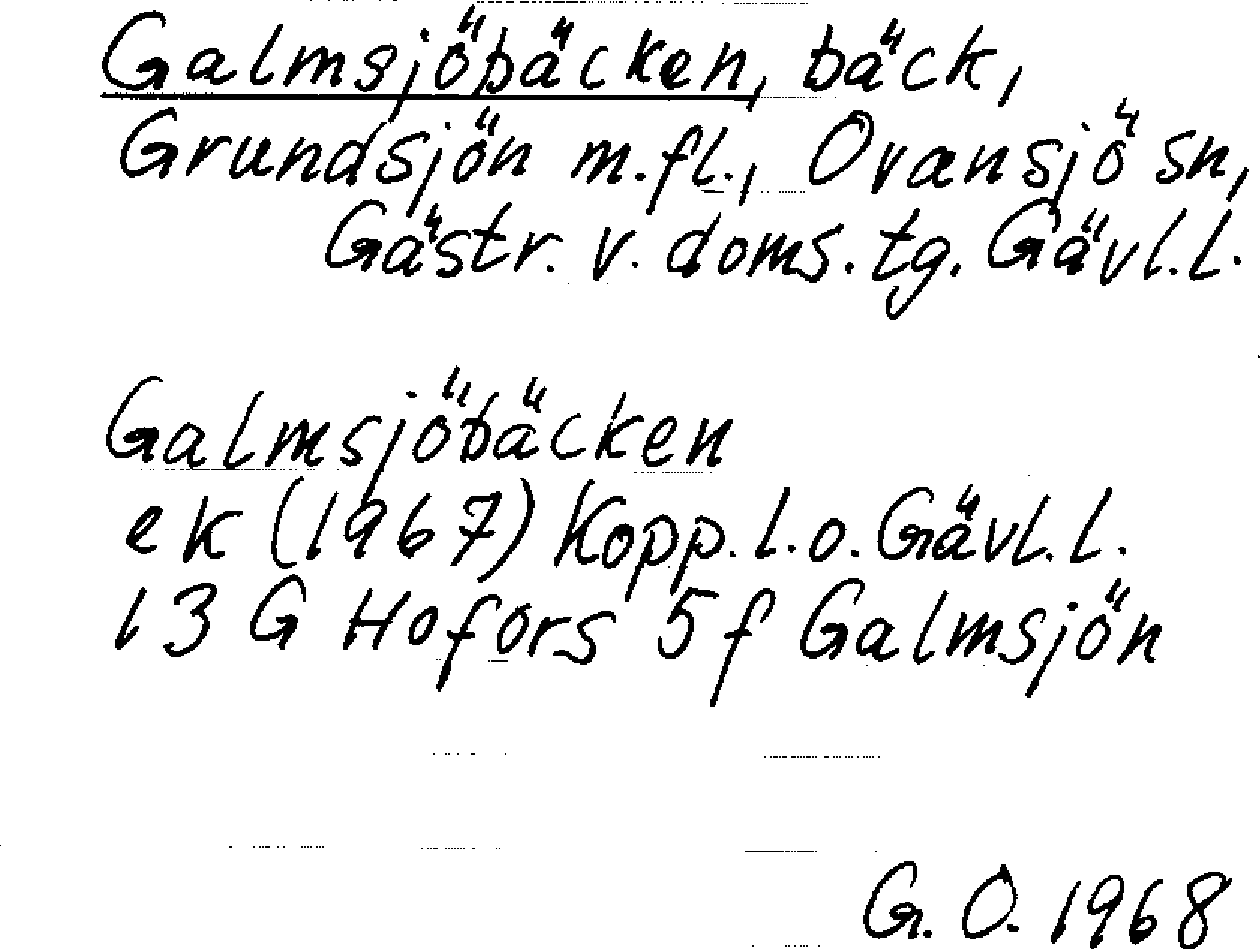 Galmsjöbäcken, bäck,
Grundsjön m.fl., Ovansjö sn,
Gästr. v. doms. tg. Gävl.l.
Galmsjöbäcken
ek (1967) Kopp.l.o.Gävl.l.
13 G Hofors 5f Galmsjön
G. O. 1968